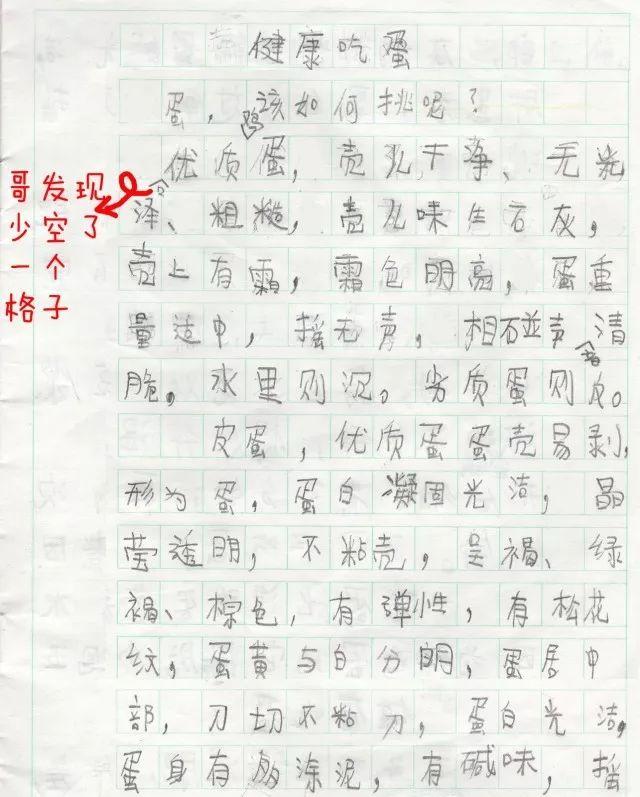 健康吃蛋
蛋，该如何挑呢？
优质鸡蛋，壳儿干净、无
泽、粗糙，壳儿味生石灰，
壳上有霜，霜色明亮，蛋重
量适中，摇无声，相碰声清
脆，水里则沉。劣质蛋则反。
皮蛋，优质蛋蛋壳易剥，
形为蛋，蛋白凝固光洁，晶
莹透明，不粘壳，呈褐、绿
褐、棕色，有弹性，有松花
纹，蛋黄与白分明，蛋居中
部，刀切不粘刀，蛋白光洁，
蛋身有涂泥，有碱味，摇
哥发现
少空了
一个
格子